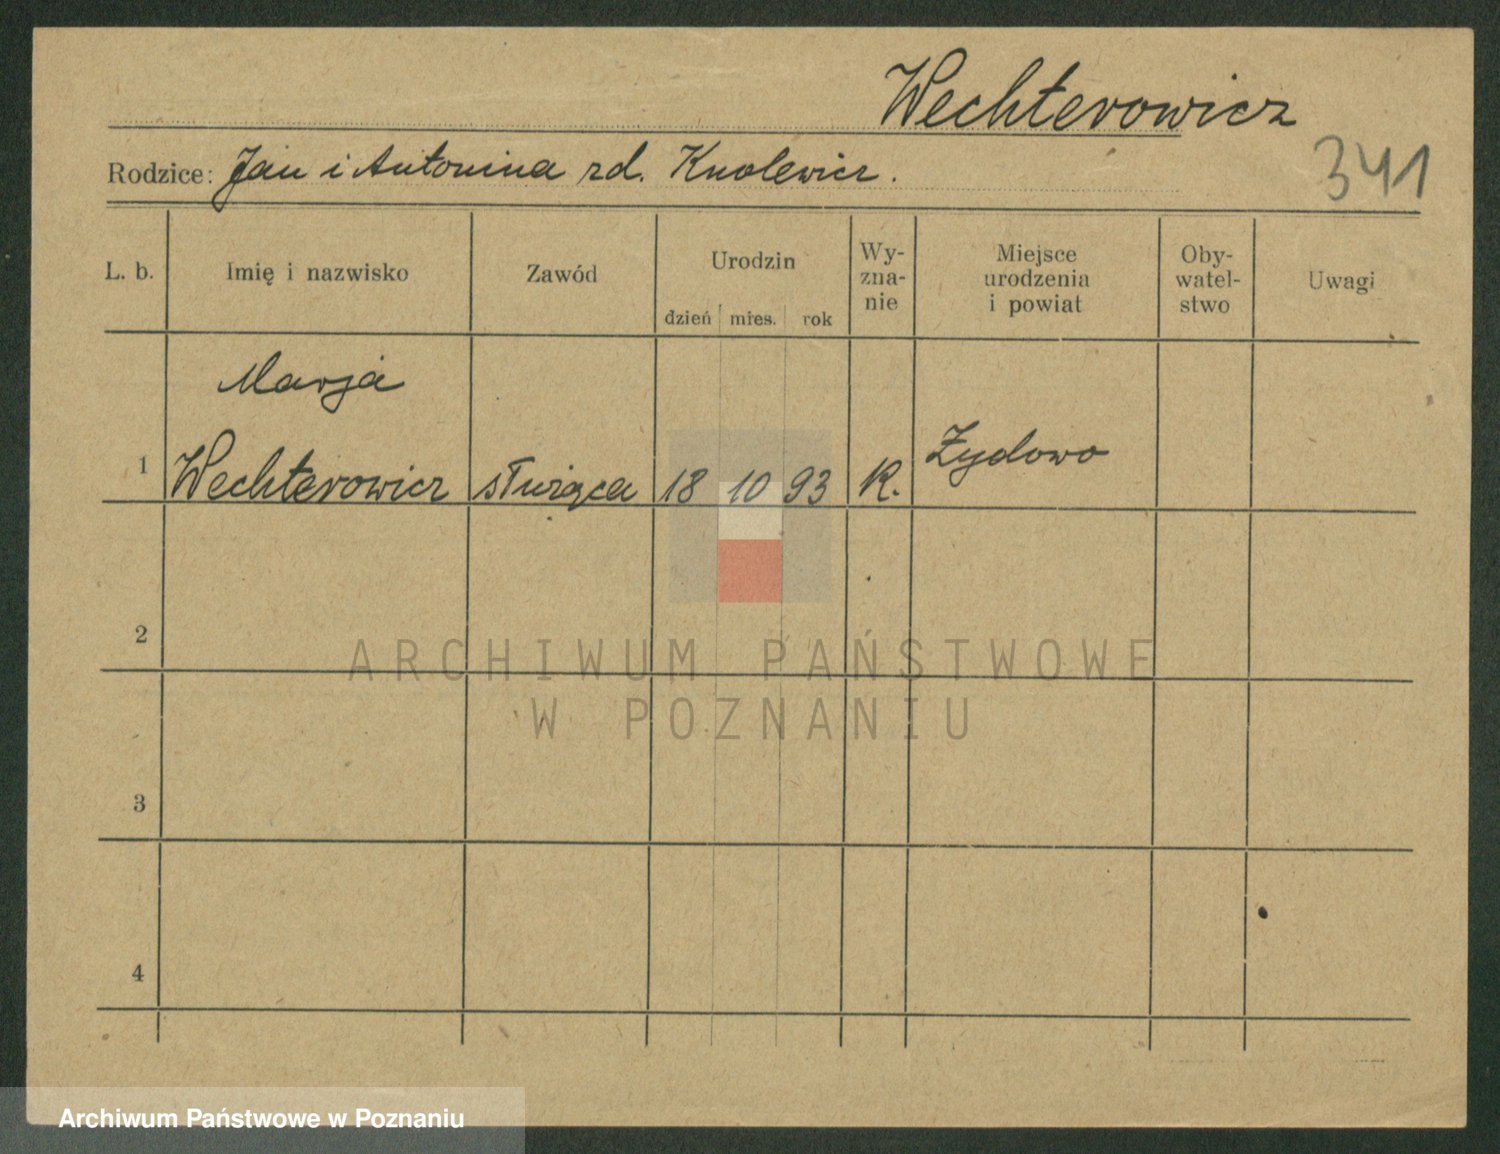 Wechterowicz
341
Rodzice: Jan i Antonina rd. Knolewicz.
L. b. Imię i nazwisko Zawód Urodzin dzień mies. rok Wy-
zna-
nie Miejsce
urodzenia
i powiat Oby-
watel-
stwo Uwagi
Marja
1 Wechterowicz służąca 18 10 93 K. Żydowo
2
ARCHIWUM PAŃSTWOWE
W POZNANIU
3
4
Archiwum Państwowe w Poznaniu